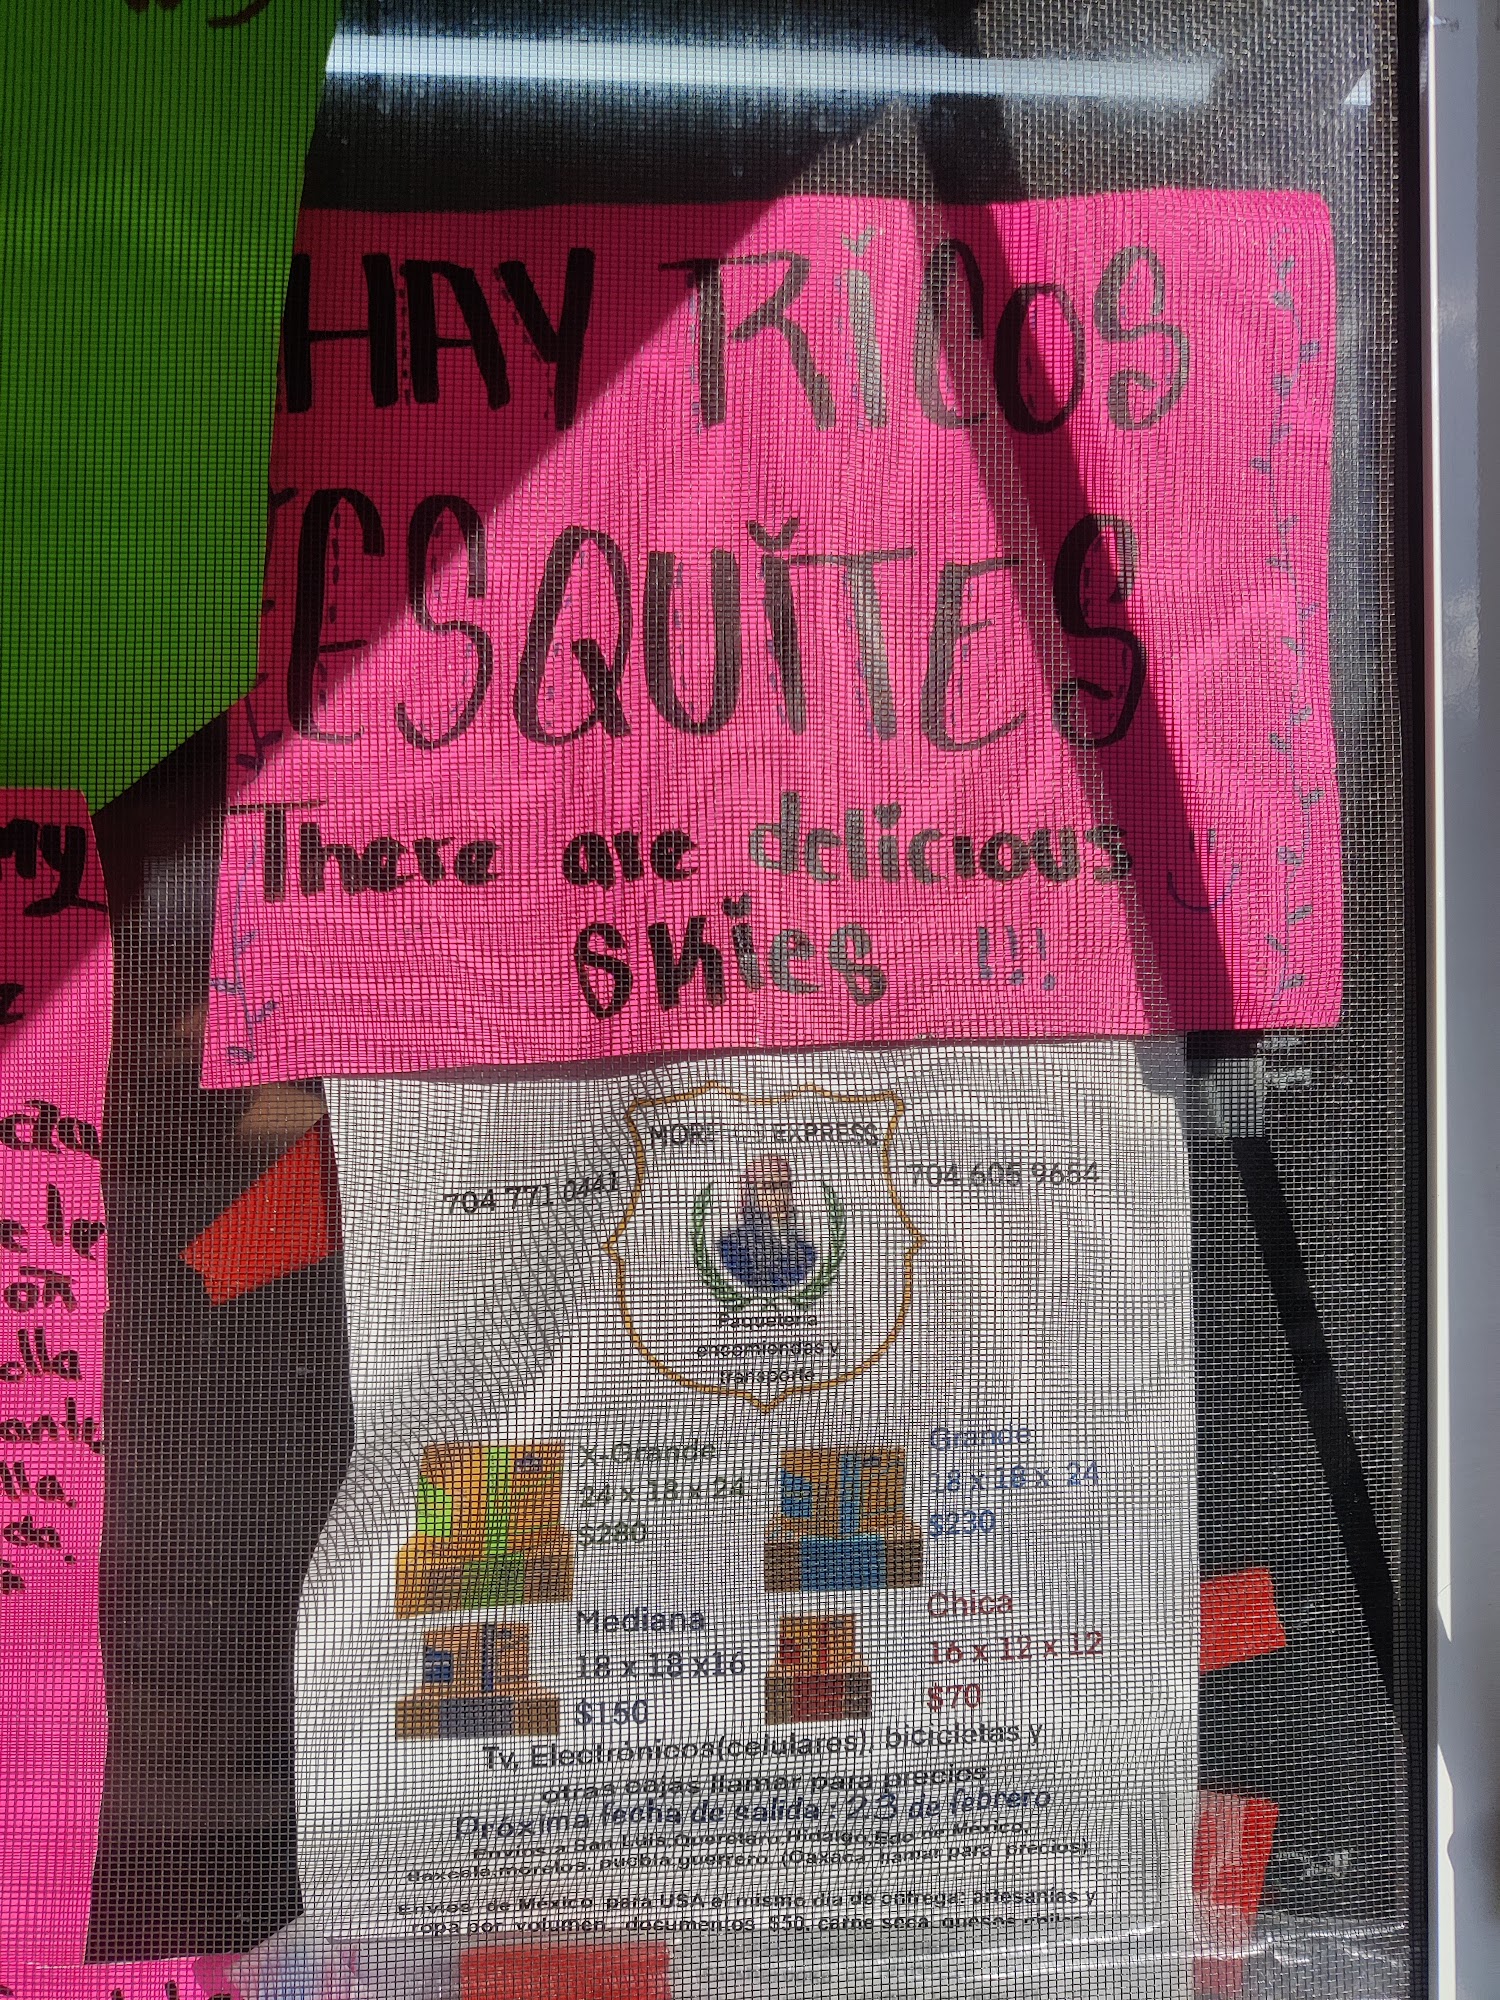 HAY RiCOS
ESQUiTES
There are delicious
skies !!!
my
EXPRESS
704 771 0441
704 605 9654
Paquetería
encomiendas y
transporte
X-Grande
24 x 18 x 24
$280
Grande
18 x 18 x 24
$230
Mediana
18 x 18 x16
$150
Chica
16 x 12 x 12
$70
Tv, Electrónicos(celulares), bicicletas y
otras cajas llamar para precios
Próxima fecha de salida : 23 de febrero
Envíos a San Luis,Queretaro,Hidalgo,Edo de Mexico,
tlaxcala,morelos, puebla,guerrero, (Oaxaca llamar para precios)
Envíos de Mexico para USA el mismo dia de entrega: artesanías y
ropa por volumen, documentos $50, carne seca, quesos